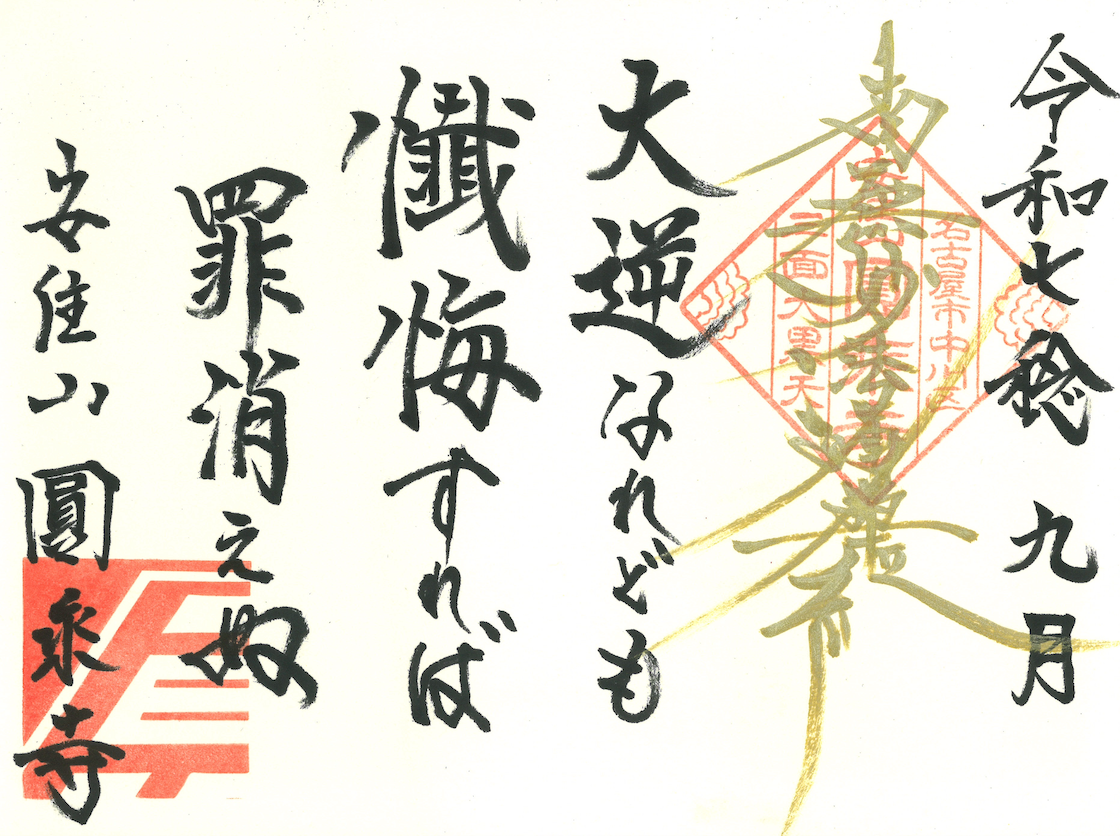 令和七稔 九月
南無妙法蓮華経
名古屋市中川区
三面大黒天
大逆なれども
懺悔すれば
罪消えぬ
安住山 圓泉寺